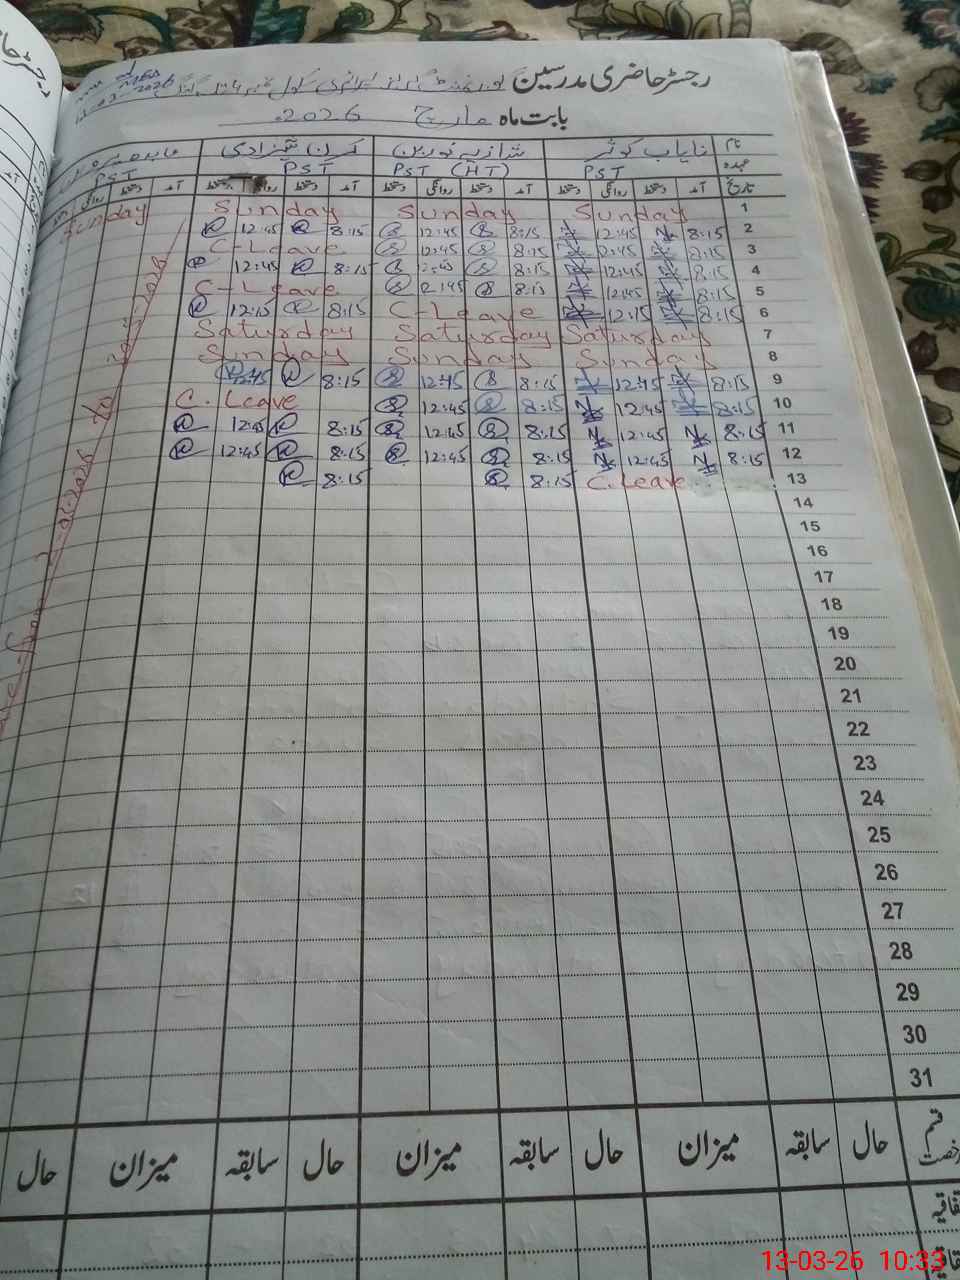 رجسٹر حاضری مدرسین گورنمنٹ گرلز پرائمری سکول
بابت ماہ مارچ 2026
نام نایاب کوثر شازیہ نورین کرن شہزادی
عہدہ PST PST (HT) PST PST
تاریخ آمد دستخط روانگی دستخط آمد دستخط روانگی دستخط آمد دستخط روانگی دستخط آمد روانگی دستخط
1 Sunday Sunday Sunday Sunday
2 8:15 12:45 8:15 12:45 8:15 12:45
3 8:15 12:45 8:15 12:45 C-Leave
4 8:15 12:45 8:15 8:15 12:45
5 8:15 12:45 8:15 C-Leave
6 8:15 12:15 C-Leave 8:15 12:15
7 Saturday Saturday Saturday
8 Sunday Sunday Sunday
9 8:15 12:45 8:15 12:45 8:15
10 8:15 12:45 8:15 12:45 C. Leave
11 8:15 12:45 8:15 12:45 8:15 12:45
12 8:15 12:45 8:15 12:45 8:15 12:45
13 C. Leave 8:15 8:15
14
15
16
17
18
19
20
21
22
23
24
25
26
27
28
29
30
31
قسم رخصت حال سابقہ میزان حال سابقہ میزان حال سابقہ میزان حال
13-03-26 10:33